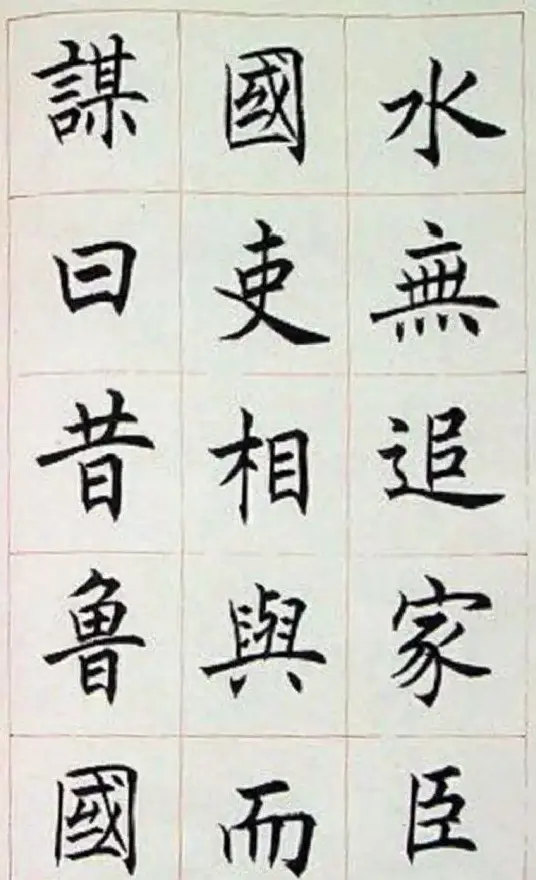 水無追家臣
國吏相與而
謀曰昔魯國